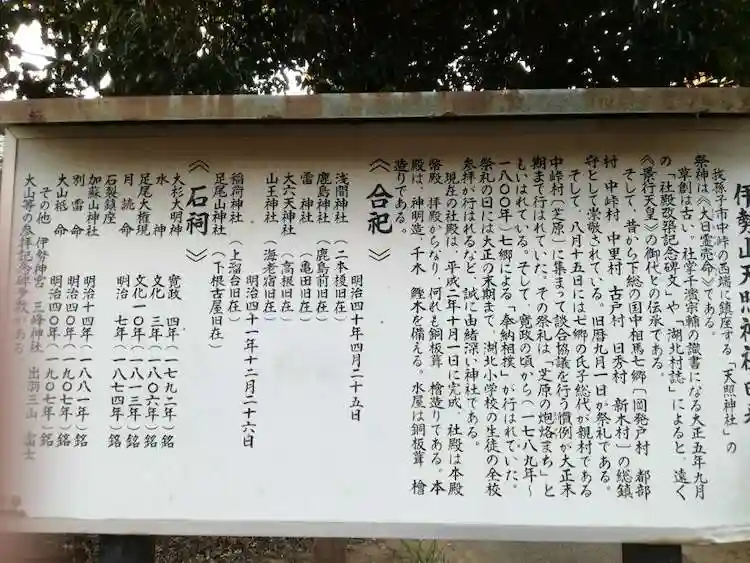 伊勢山天照神社由来
我孫子市中峠の西端に鎮座する「天照神社」の
祭神は《大日霊売命》である。
草創は古い。社掌千濱宗輔の識書になる大正五年九月
の「社殿改築記念碑文」や「湖北村誌」によると、遠く
《景行天皇》の御代との伝承である。
そして、昔から下総の国中相馬七郷〔岡発戸村 都部
村 中峠村 中里村 古戸村 日秀村 新木村〕の総鎮
守として崇敬されている。旧暦九月一日が祭礼である。
そして、八月十五日には七郷の氏子総代が親村である
中峠村〔芝原〕に集まって談合協議を行う慣例が大正末
期まで行はれていた。その祭礼は「芝原の炮烙まち」と
もいはれている。そして、寛政の頃から(一七八九年~
一八〇〇年)七郷による「奉納相撲」が行はれていた。
祭礼の日には大正の末期まで、湖北小学校の生徒の全校
参拝が行はれるなど、誠に由緒深い神社である。
現在の社殿は、平成二年十月一日に完成、社殿は本殿
幣殿 拝殿からなり、何れも銅板葺、檜造りである。本
殿は、神明造、千木、鰹木を備える。水屋は銅板葺、檜
造りである。
《合祀》
浅間神社(二本榎旧在) 明治四十年四月二十五日
鹿島神社(鹿島前旧在)
雷神社(亀田旧在)
大六天神社(高根旧在)
山王神社(海老宿旧在)
稲荷神社(上溜台旧在) 明治四十一年十二月二十六日
足尾山神社(下根古屋旧在)
《石祠》
大杉大明神 寛政 四年(一七九二年)銘
水神 文化 三年(一八〇六年)銘
足尾大権現 文化一〇年(一八一三年)銘
月読命 明治 七年(一八七四年)銘
石製鎮座
加蘇山神社 明治十四年(一八八一年)銘
別雷命 明治四〇年(一九〇七年)銘
大山祇命 明治四〇年(一九〇七年)銘
その他 伊勢神宮 三峰神社 出羽三山 富士
大山等の参拝記念碑多数がある。